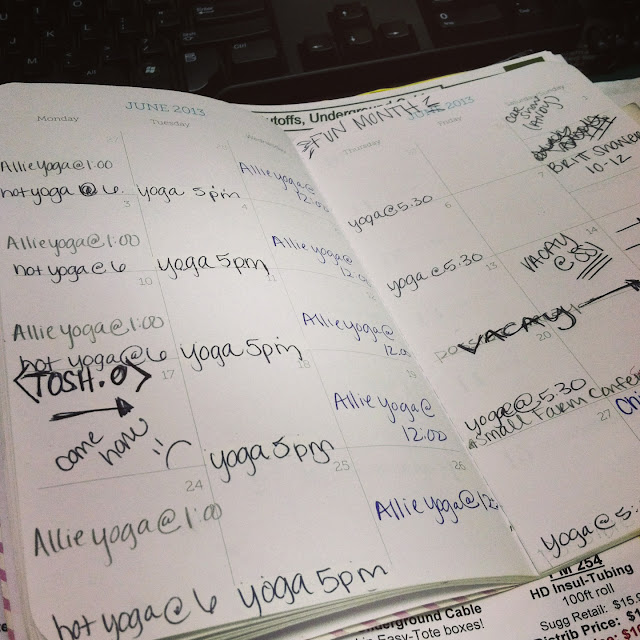 JUNE 2013
Monday
Tuesday
Allie yoga @ 1:00
hot yoga @ 6
3
yoga 5pm
4
Allie yoga @
12:00
Allie yoga @ 1:00
hot yoga @ 6
10
yoga 5pm
11
Allie yoga @
Allie yoga @ 1:00
hot yoga @ 6
17
yoga 5pm
18
Allie yoga @
<TOSH.O>
come home
24
yoga 5pm
25
Allie yoga @
12:00
26
Allie yoga @ 1:00
hot yoga @ 6
yoga 5pm
Allie yoga @ 12
FUN MONTH!
2013
Thursday
yoga @ 5.30
6
7
BRITT
10-12
yoga @ 5.30
13
14
VACAY
VACAY
20
yoga @ 5.30
Small Farm
27
yoga @ 5:
utoffs, Underground
PM 254
HD Insul-Tubing
100ft roll
Sugg Retail: $15.
Price:
derground Cable
Easy-Tote boxes!
Ctrl